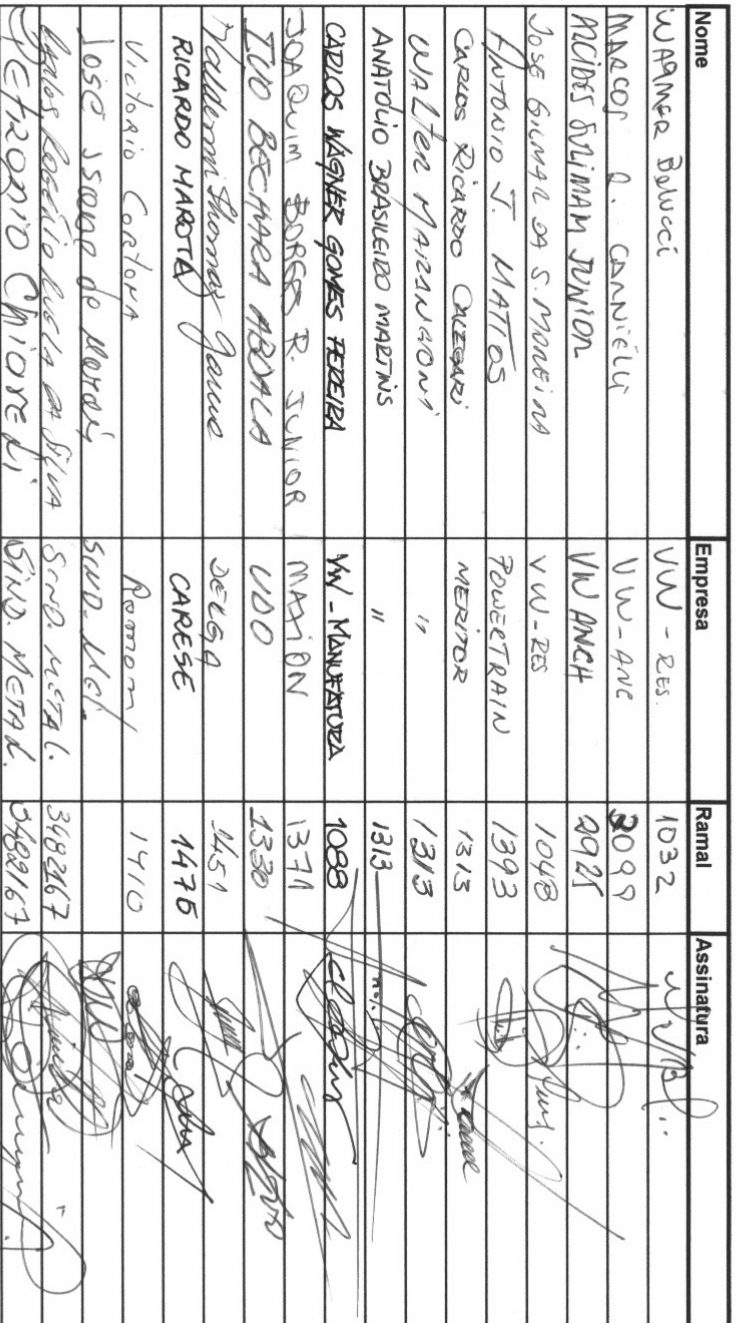 Nome Empresa Ramal Assinatura
WAGNER Belucci VW - RES. 1032
MARCOS R. VW - ANC 2099
ALCIDES SULIMAM JUNIOR VW ANCH 2925
JOSE GILMAR DA S. MOREIRA VW - RES 1048
ANTONIO J. MATTOS POWERTRAIN 1393
CARLOS RICARDO CALEGARI MERITOR 1313
WALTER MARANGONI " 1313
ANATÓLIO BRASILEIRO MARTINS " 1313
CARLOS WAGNER GOMES PEREIRA VW - MANUFATURA 1088
JOAQUIM BORGES R. JUNIOR MAXION 1371
IVO BECHARA ABDALA UDO 1330
Thomaz DELGA 1451
RICARDO MAROTA CARESE 1475
Victorio Cortona 1410
José de Morais SIND. Met.
Carlos da SILVA SIND. METAL. 3482167
Chiaredi SIND. METAL. 3482167